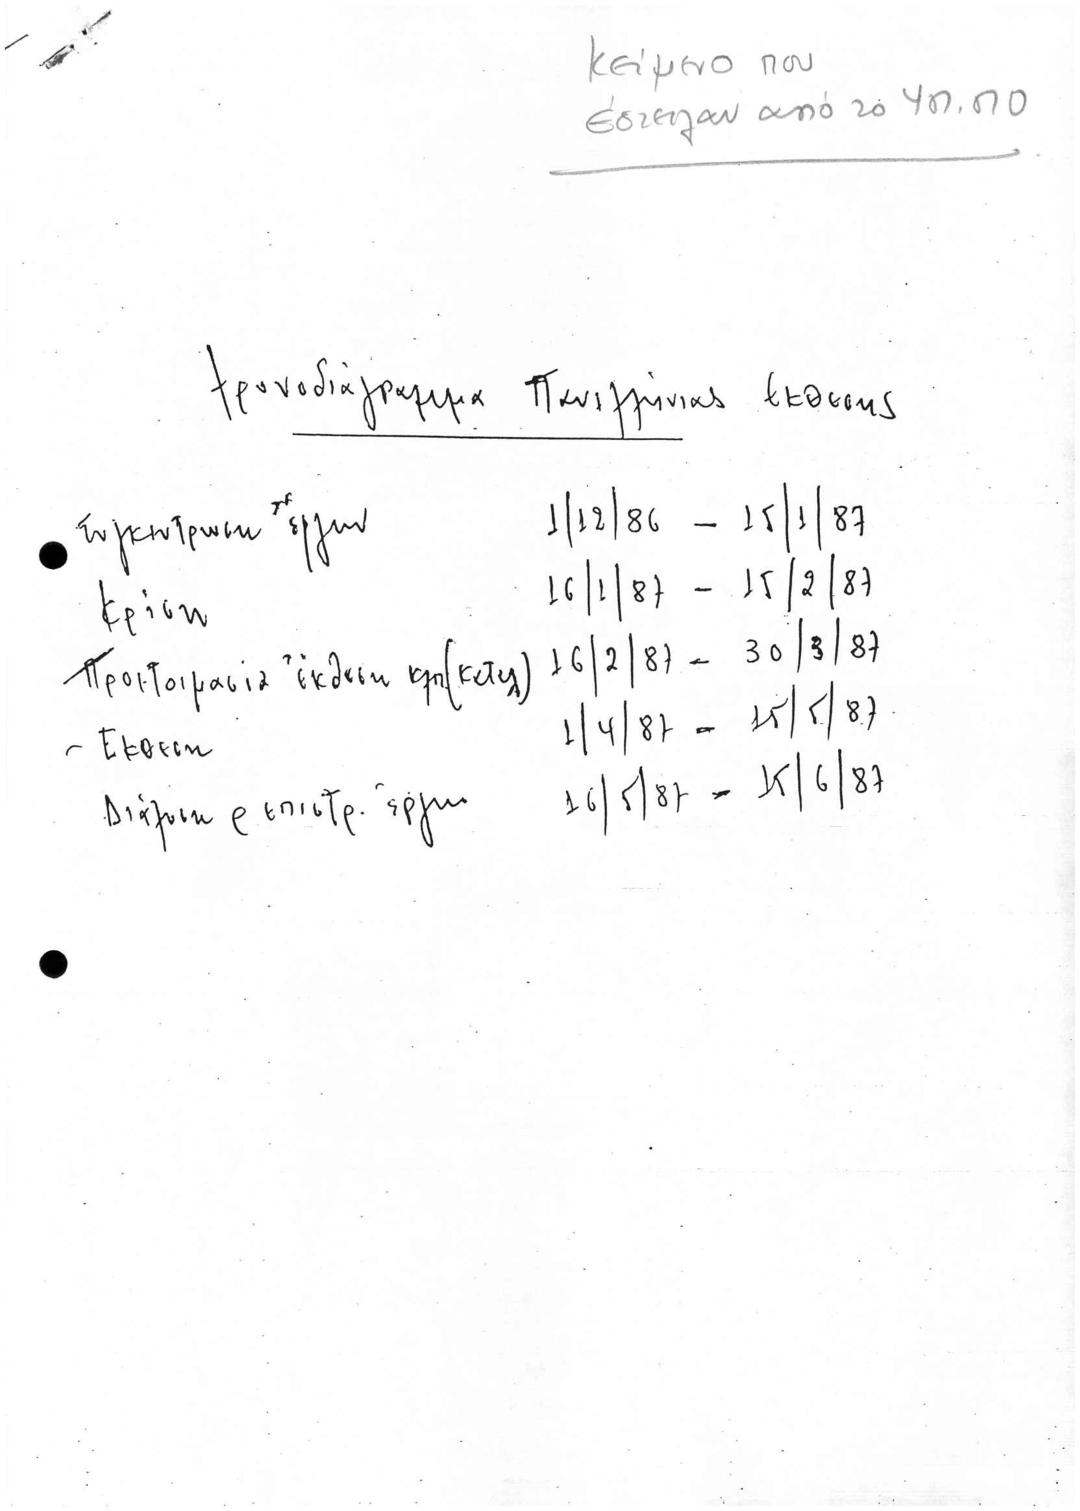 κείμενο που
έστειλαν από το ΥΠ.ΠΟ
Χρονοδιάγραμμα Πανελλήνιας Εκθεσης
Συγκεντρωση έργων 1/12/86 – 15/1/87
Κρίση 16/1/87 – 15/2/87
Προετοιμασία έκθεση κλπ (καταλ) 16/2/87 – 30/3/87
– Εκθεση 1/4/87 – 15/5/87
Διάλυση & επιστρ. έργων 16/5/87 – 15/6/87